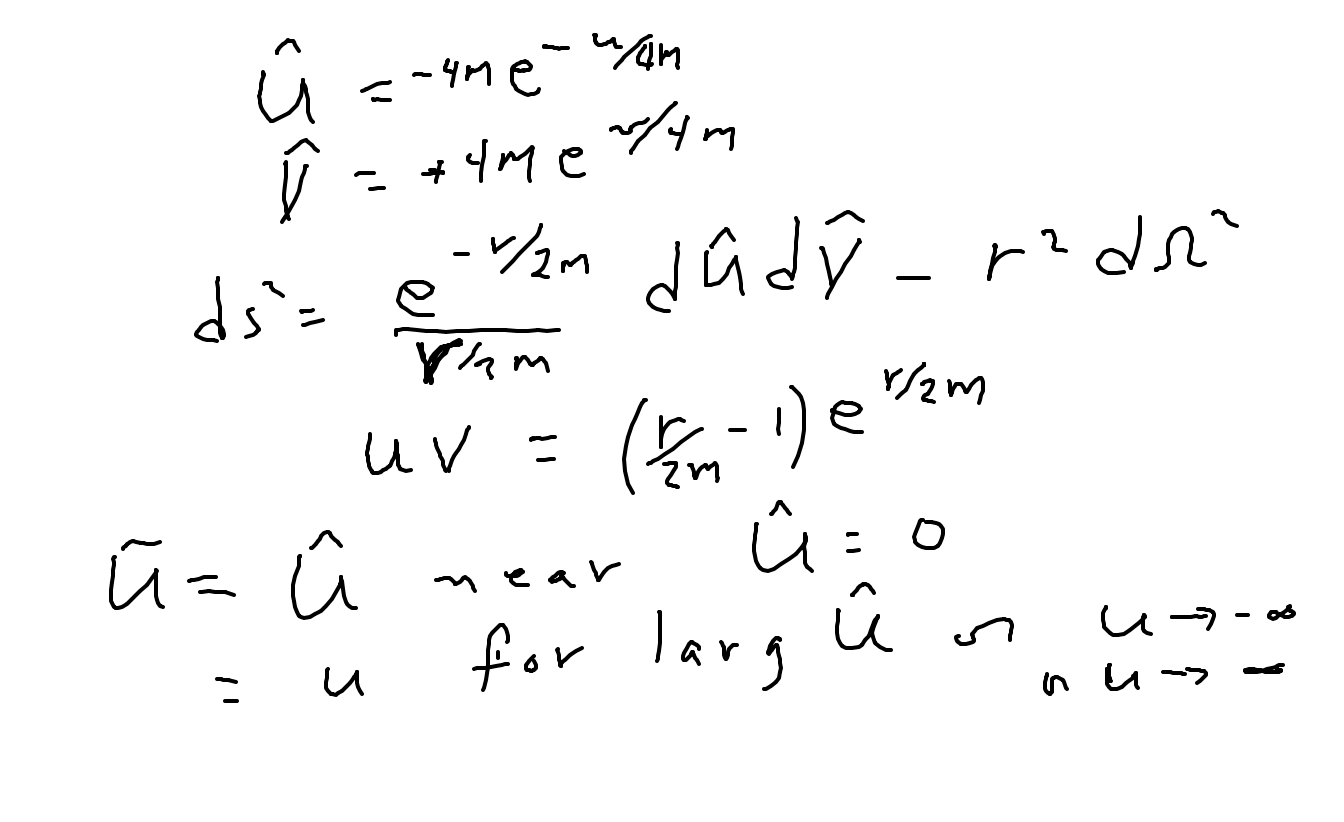 û = -4m e^{-u/4m}
v̂ = +4m e^{v/4m}
ds² = e^{-r/2m} / (r/2m) dû dv̂ - r² dΩ²
uv = (r/2m - 1) e^{r/2m}
ũ = û near û = 0
= u for larg û or u → -∞
u → -